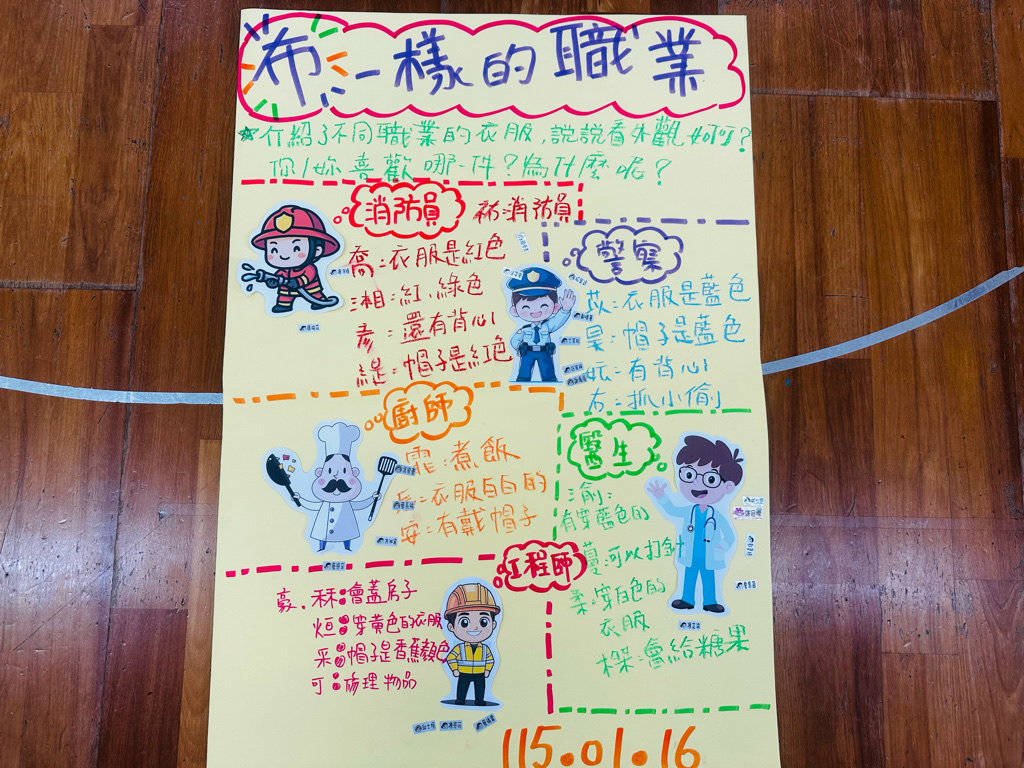 布一樣的職業
介紹了不同職業的衣服,說說看外觀如何?
你/妳喜歡哪一件?為什麼呢?
消防員
祐消防員
喬:衣服是紅色
湘:紅、綠色
彥:還有背心
緹:帽子是紅色
警察
苡:衣服是藍色
昊:帽子是藍色
妘:有背心
右:抓小偷
廚師
霏:煮飯
衣服白白的
安:有戴帽子
醫生
渝:
有穿藍色的
蔓:可以打針
柔:穿白色的
衣服
:會給糖果
工程師
豪、秝:會蓋房子
烜:穿黃色的衣服
采:帽子是香蕉顏色
可:修理物品
115.01.16